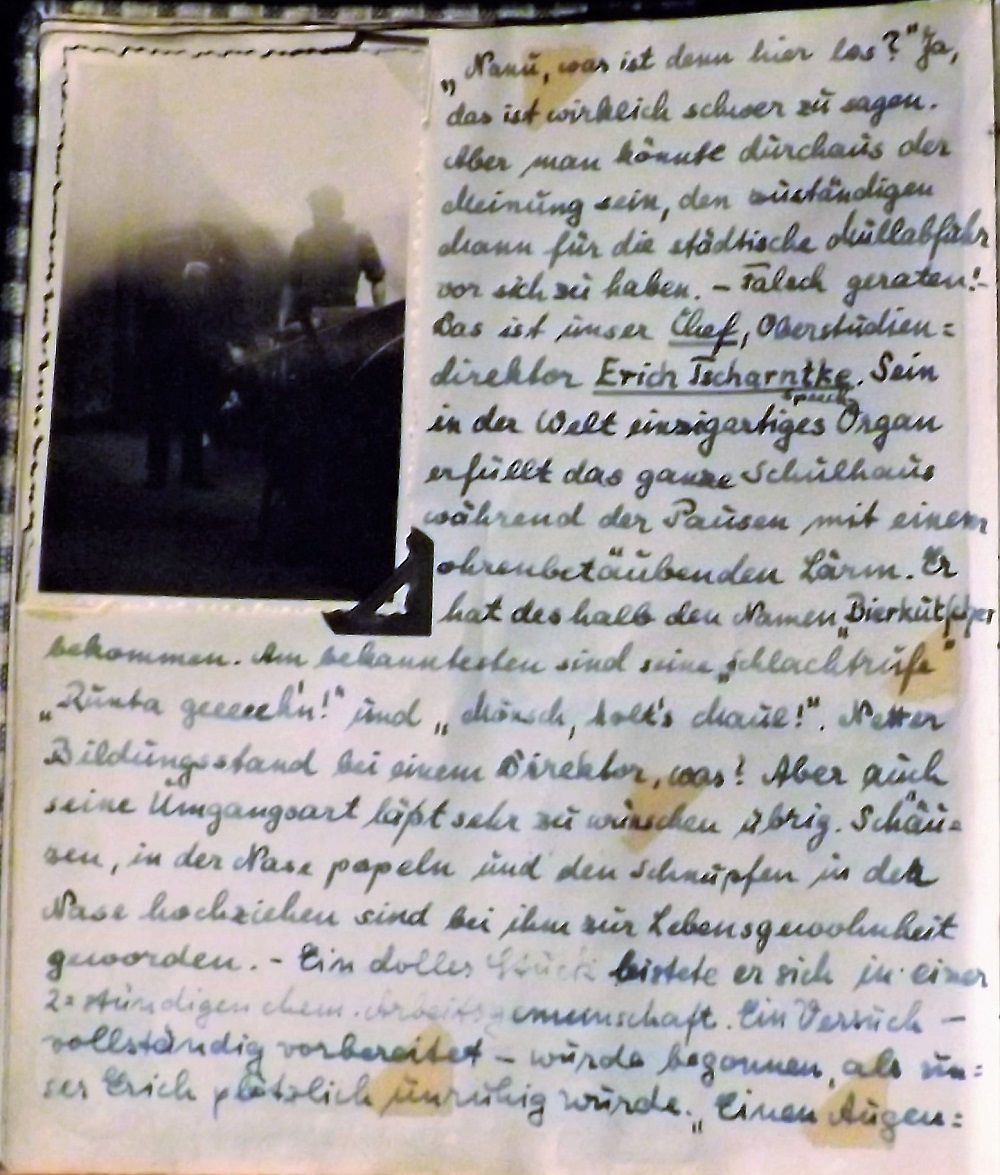 „Nanu, was ist denn hier los?" Ja,
das ist wirklich schwer zu sagen.
Aber man könnte durchaus der
Meinung sein, den zuständigen
Mann für die städtische Müllabfuhr
vor sich zu haben. – Falsch geraten! –
Das ist unser Chef, Oberstudien=
direktor Erich Tscharntke. Sein
in der Welt einzigartiges Organ
erfüllt das ganze Schulhaus
während der Pausen mit einem
ohrenbetäubenden Lärm. Er
hat deshalb den Namen „Bierkutscher
bekommen. Am bekanntesten sind seine „Schlachtrufe"
„Runta geeeeh'n!" und „Mönsch, holt's Maul!". Netter
Bildungsstand bei einem Direktor, was? Aber auch
seine Umgangsart läßt sehr zu wünschen übrig. Schäu=
zen, in der Nase popeln und den Schnupfen in der
Nase hochziehen sind bei ihm zur Lebensgewohnheit
geworden. – Ein dolles Stück leistete er sich in einer
2=stündigen chem. Arbeitsgemeinschaft. Ein Versuch –
vollständig vorbereitet – wurde begonnen, als un=
ser Erich plötzlich unruhig wurde. „Einen Augen=